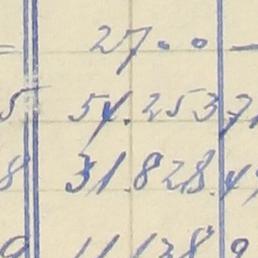 27.00 —
5 54.253 71
8 31.828.49
9 11.138 9